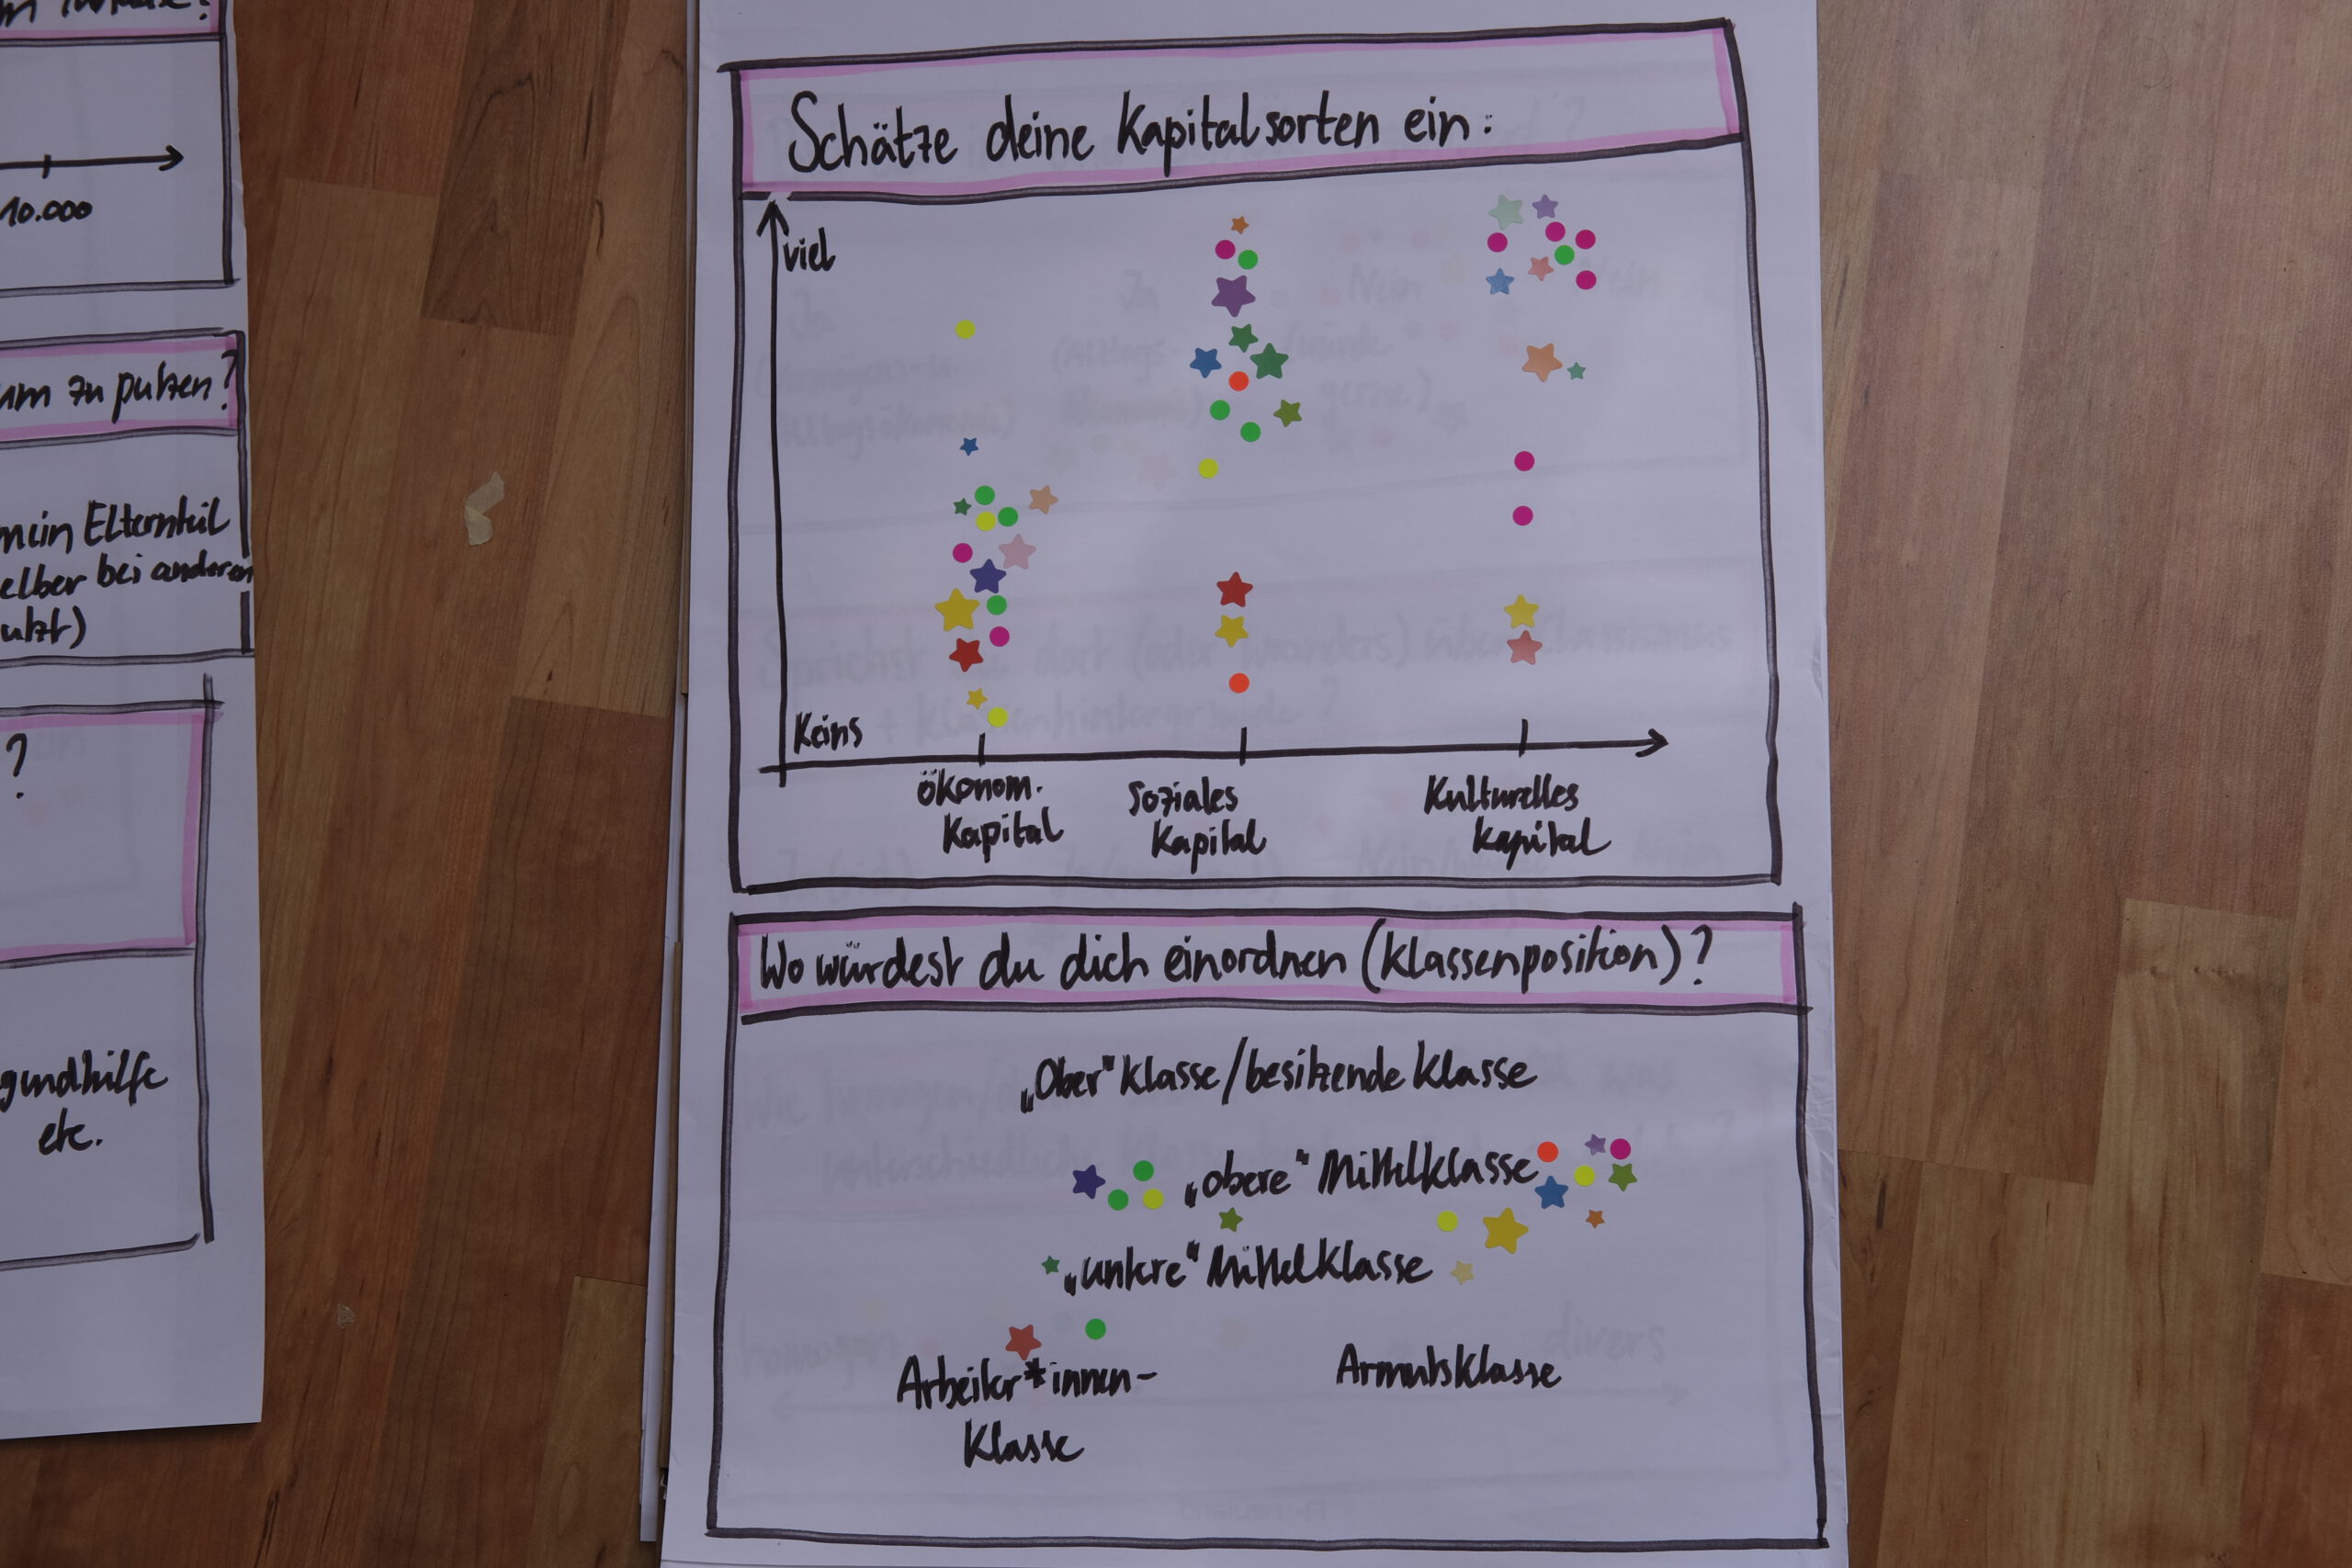 10.000
um zu putzen?
mein Elternteil
selber bei anderen
putzt)
?
gendhilfe
etc.
Schätze deine Kapitalsorten ein:
viel
Keins
ökonom. Kapital
Soziales Kapital
Kulturelles Kapital
Wo würdest du dich einordnen (Klassenposition)?
„Ober" Klasse/besitzende Klasse
„obere" Mittelklasse
„untere" Mittelklasse
Arbeiter*innen-
Klasse
Armutsklasse